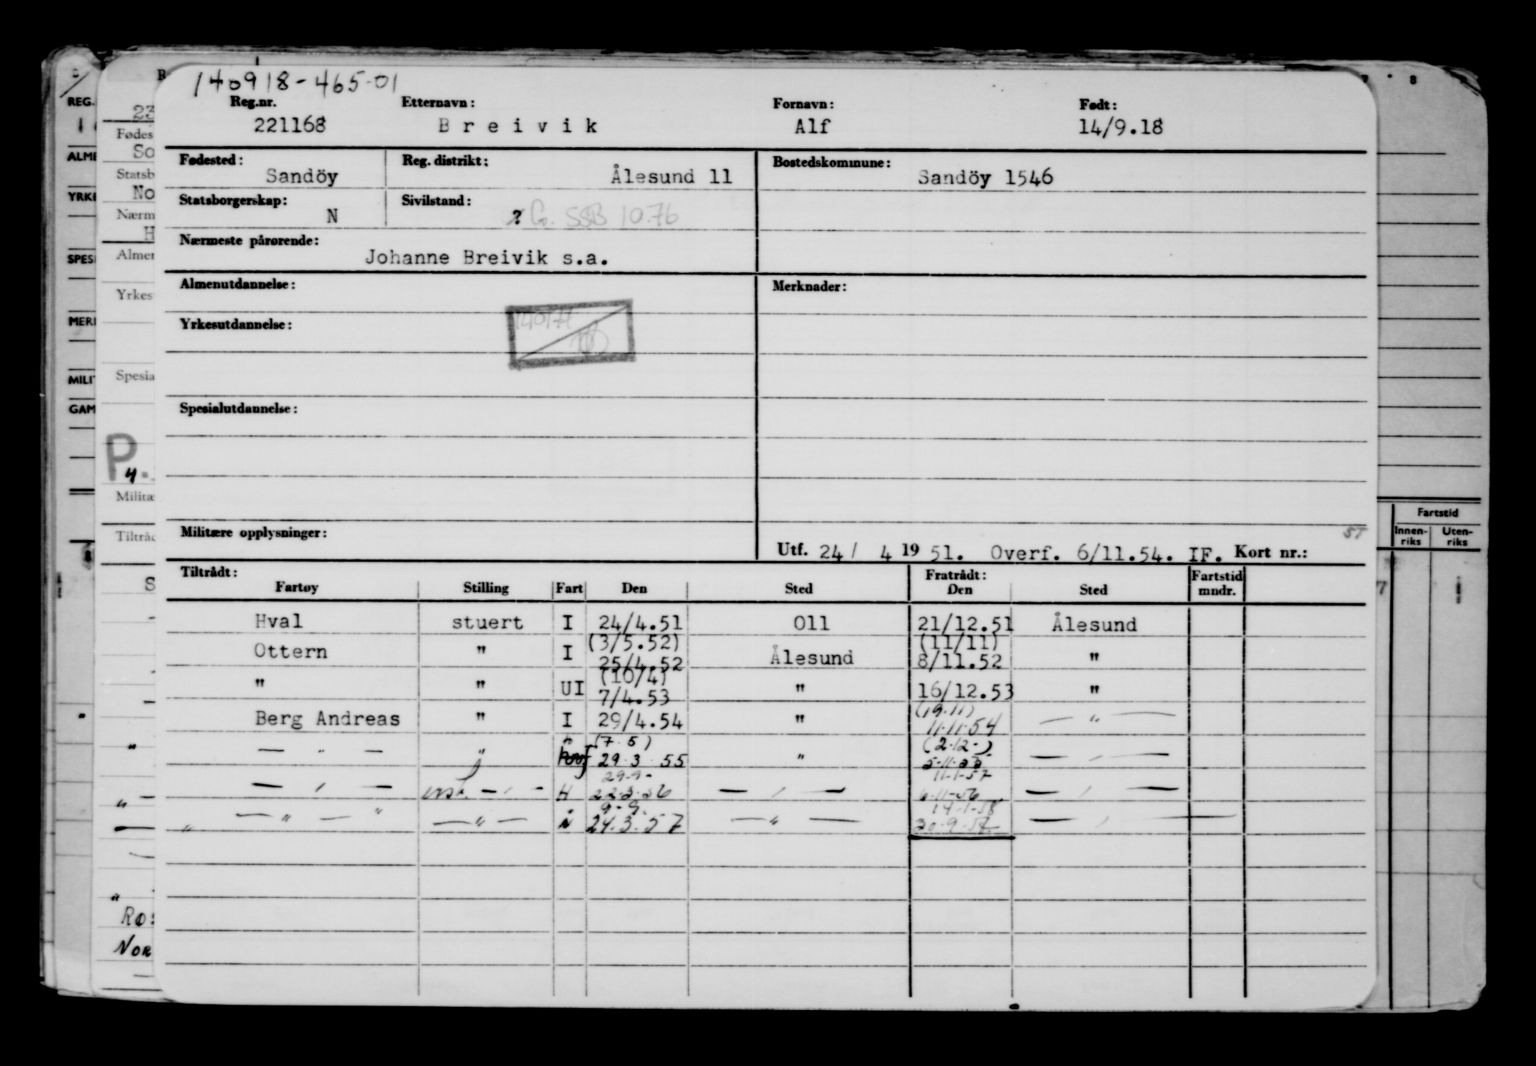 140918-465-01
Reg.nr. Etternavn: Fornavn: Født:
221168 Breivik Alf 14/9.18
Fødested: Reg. distrikt: Bostedskommune:
Sandöy Ålesund 11 Sandöy 1546
Statsborgerskap: Sivilstand:
N ? G. SSB 10.76
Nærmeste pårørende:
Johanne Breivik s.a.
Almenutdannelse: Merknader:
Yrkesutdannelse:
Spesialutdannelse:
Militære opplysninger:
Utf. 24/ 4 19 51. Overf. 6/11.54. IF. Kort nr.:
Tiltrådt: Fratrådt: Fartstid
Fartøy Stilling Fart Den Sted Den Sted mndr.
Hval stuert I 24/4.51 Oll 21/12.51 Ålesund
(3/5.52) (11/11)
Ottern " I 25/4.52 Ålesund 8/11.52 "
(10/4)
" " UI 7/4.53 " 16/12.53 "
(19.11)
Berg Andreas " I 29/4.54 " 11.11.54 — " —
(7.5) (2.12-)
— " — " 29.3 55 " — " —
29.9- 11-1-57
— " — — " — H 22.3.56 — " — 6-11-56 — " —
9-9. 14-1-58
— " — " — " — 24.3.57 — " — — " —
REG.
ALME
YRKE
SPESI
MERI
MILIT
GAM
Fødes
So
Statsb
No
Nærm
H
Almen
Yrkes
Spesia
P
4.
Militæ
Tiltråd
S
Ros
Nor
7 8
Fartstid
Innen-
riks
Uten-
riks